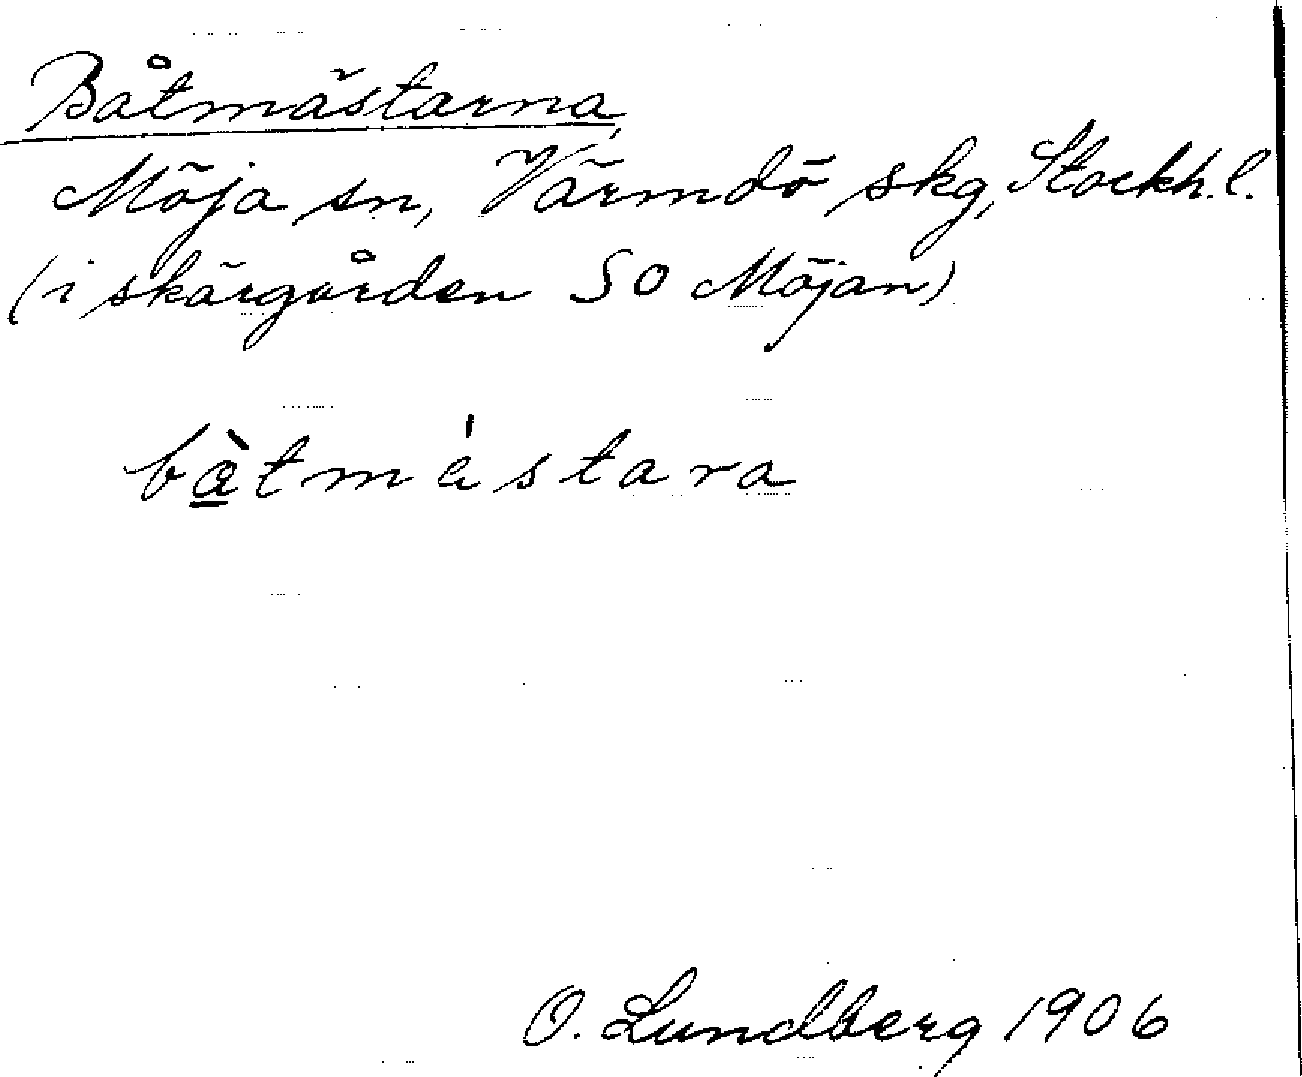 Båtmästarna,
Möja sn, Värmdö skg, Stockh. l.
(i skärgården SO Möjan)
bà̱tmástara
O. Lundberg 1906